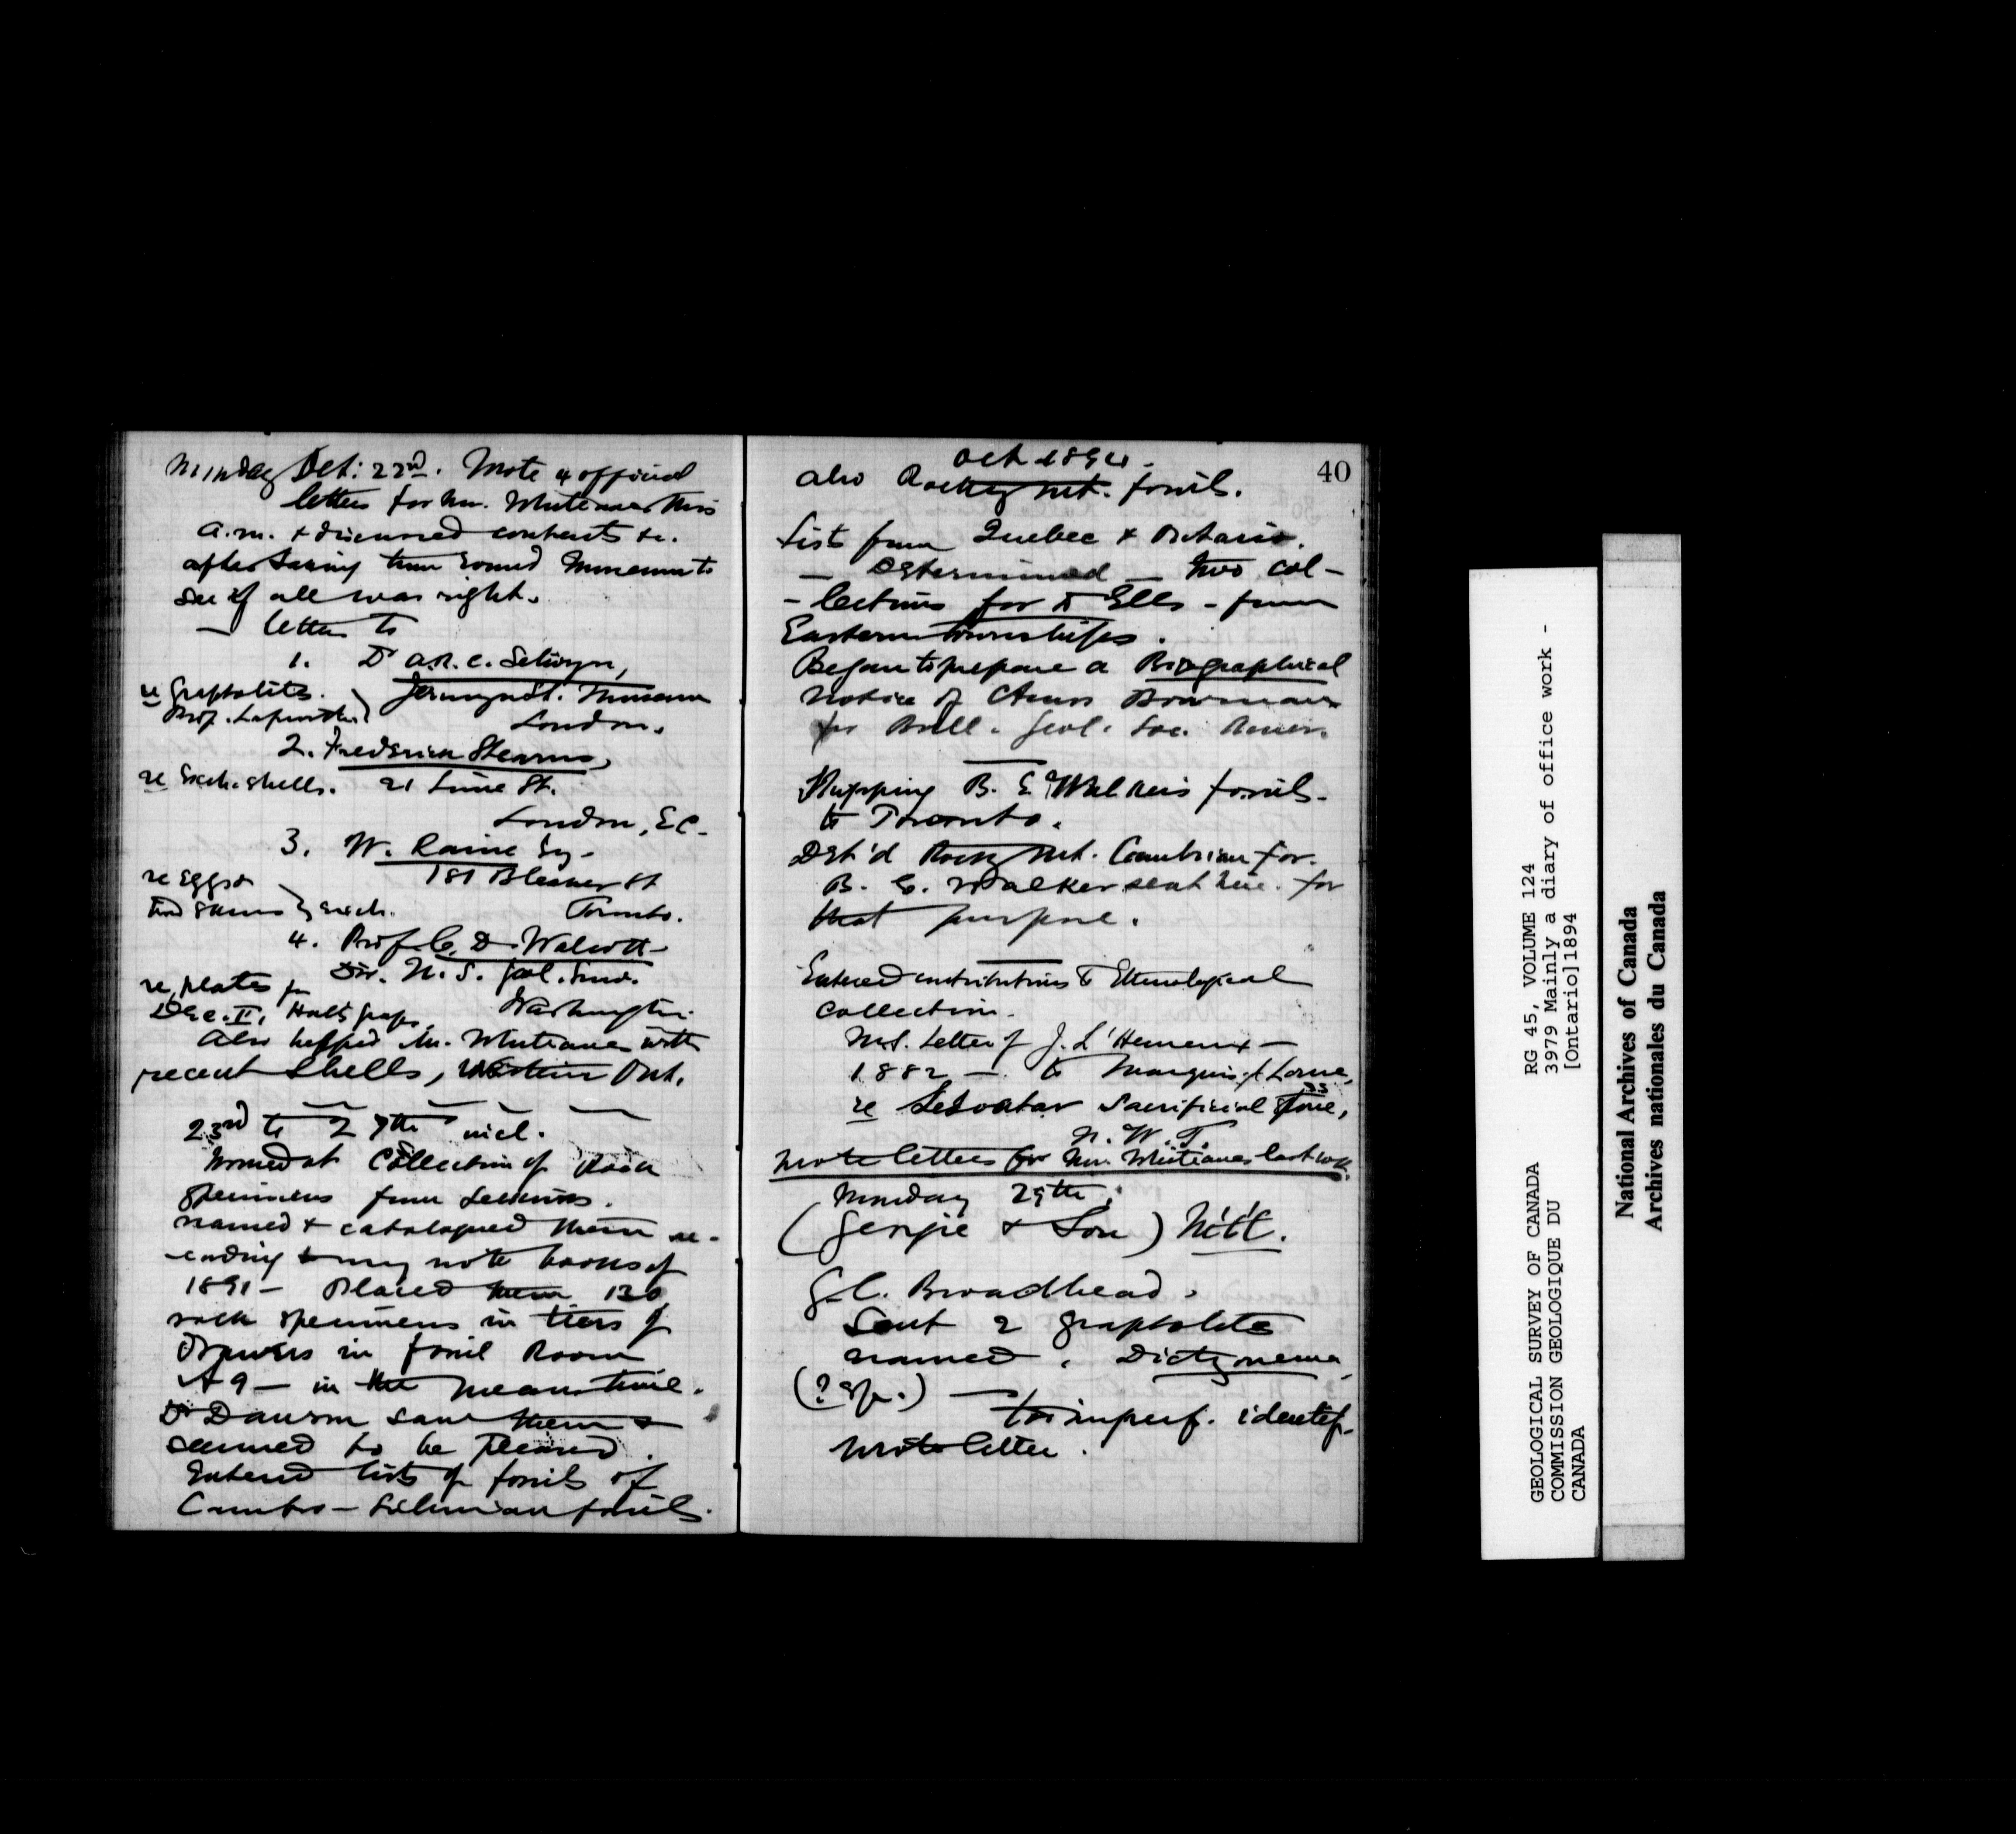 Monday Oct: 22nd. Wrote 4 official
letters for Mr. Whiteaves this
a.m. & discussed contents &c.
after taking turn round Museum to
see if all was right.
— letters to
1. Dr A.R.C. Selwyn,
re Graptolites. Jermyn St. Museum
Prof. Lapworth
London.
2. Frederick Stearns,
re Exch. shells. 21 Lime St.
London, E.C.
3. W. Raine Esq.
181 Bleeker St
re Eggs &
bird skins exch. Toronto.
4. Prof. C. D. Walcott
Dir. U.S. Geol. Surv.
re plates for
Dec. II, Hall's grap. Washington.
Also helped Mr. Whiteaves with
recent shells, Western Ont.
23rd to 27th incl.
Worked at Collection of rock
specimens from
named & catalogued them ac-
-cording to my note books of
1891 — Placed them 130
rock specimens in tiers of
Drawers in fossil Room
A 9 — in the meantime.
Dr Dawson saw them &
seemed to be pleased.
Entered lists of fossils of
Cambro-Silurian fossils.
Oct 1894.
40
also Rocky Mt. fossils.
Lists from Quebec & Ontario.
— Determined — two col-
-lections for Dr Ells - from
Eastern Townships.
Began to prepare a Biographical
Notice of Amos Bowman
for Bull. Geol. Soc. Amer.
Shipping B. E. Walker's fossils
to Toronto.
Det'd Rocky Mt. Cambrian for
B. E. Walker sent here for
that purpose.
Entered contributions to Ethnological
collection.
M.S. Letter of J. L'Heureux —
1882 — to Marquis of Lorne,
re Sacrificial Stone,
N.W.T.
Wrote letters for Mr. Whiteaves last wk.
Monday 29th.
(Georgie & Son)
G.C. Broadhead.
Sent 2 graptolites
named. Dictyonema
(? sp.) —
too imperf. identif.
Wrote letter.
GEOLOGICAL SURVEY OF CANADA
COMMISSION GEOLOGIQUE DU
CANADA
RG 45, VOLUME 124
3979 Mainly a diary of office work -
[Ontario]1894
National Archives of Canada
Archives nationales du Canada